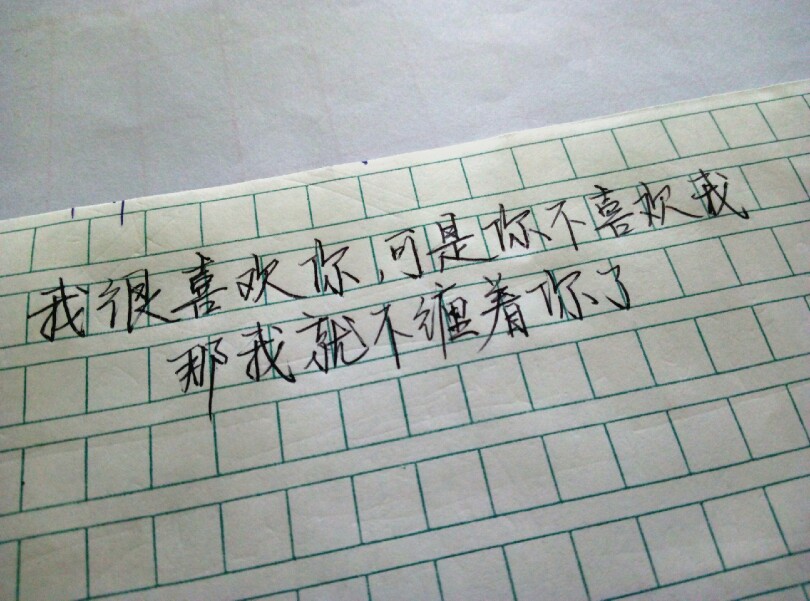 我很喜欢你,可是你不喜欢我
那我就不缠着你了